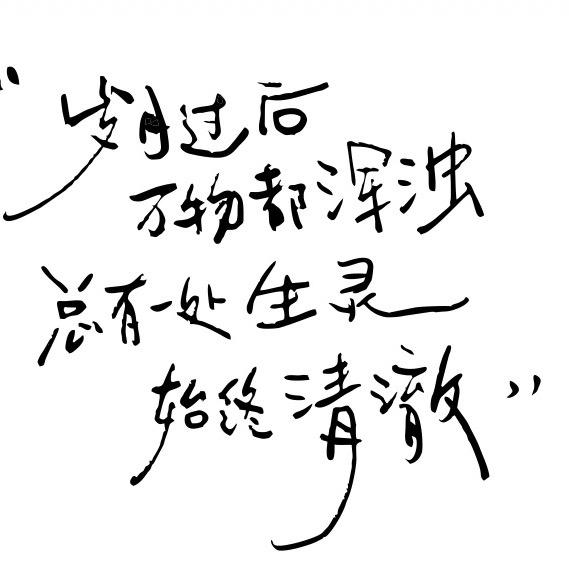 "岁月过后
万物都浑浊
总有一处生灵
始终清澈"